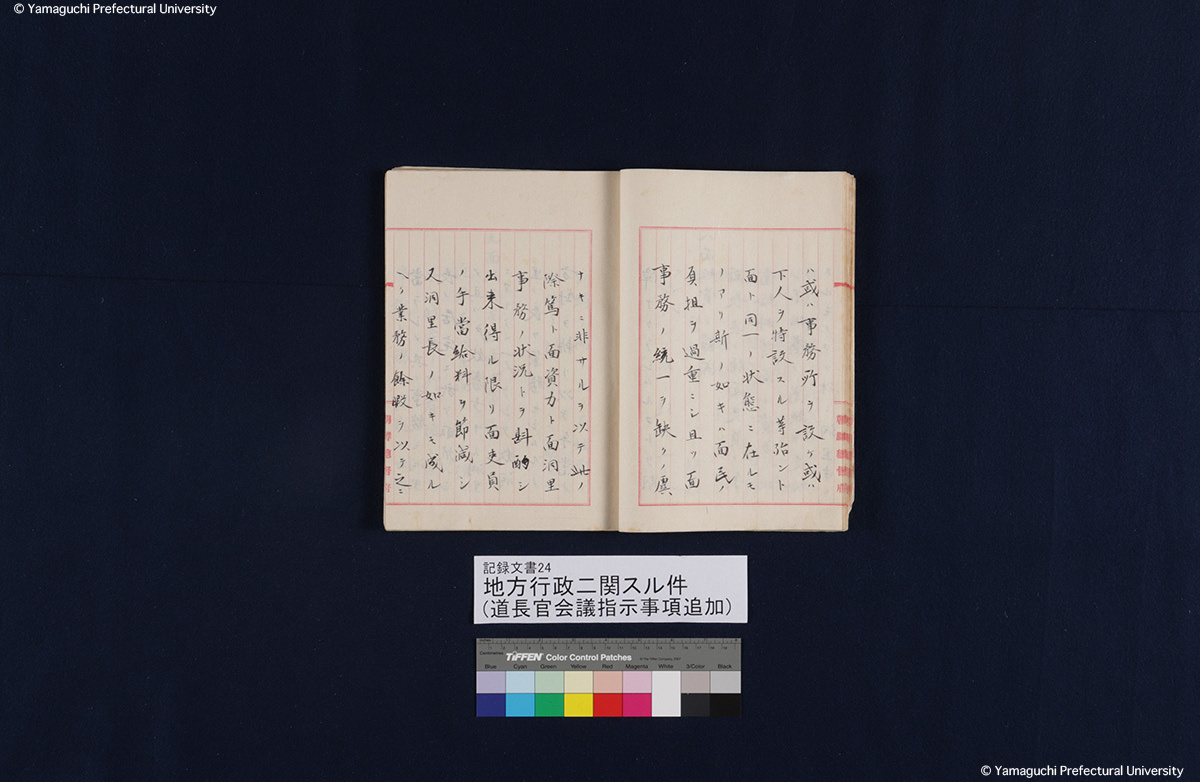 © Yamaguchi Prefectural University
ハ或ハ事務所ヲ設ケ或ハ
下人ヲ特設スル等殆ント
面ト同一ノ状態ニ在ルモ
ノアリ斯ノ如キハ面民ノ
負担ヲ過重ニシ且ツ面
事務ノ統一ヲ缺クノ虞
ナキニ非サルヲ以テ此ノ
際篤ト面資力ト面洞里
事務ノ状況トヲ斟酌シ
出来得ル限リ面吏員
ノ手當給料ヲ節減シ
又洞里長ノ如キモ成ル
ヘク業務ノ餘暇ヲ以テ之ニ
朝鮮總督府
朝鮮總督府
記録文書24
地方行政ニ関スル件
(道長官会議指示事項追加)
TIFFEN Color Control Patches
Blue Cyan Green Yellow Red Magenta White 3/Color Black
© Yamaguchi Prefectural University